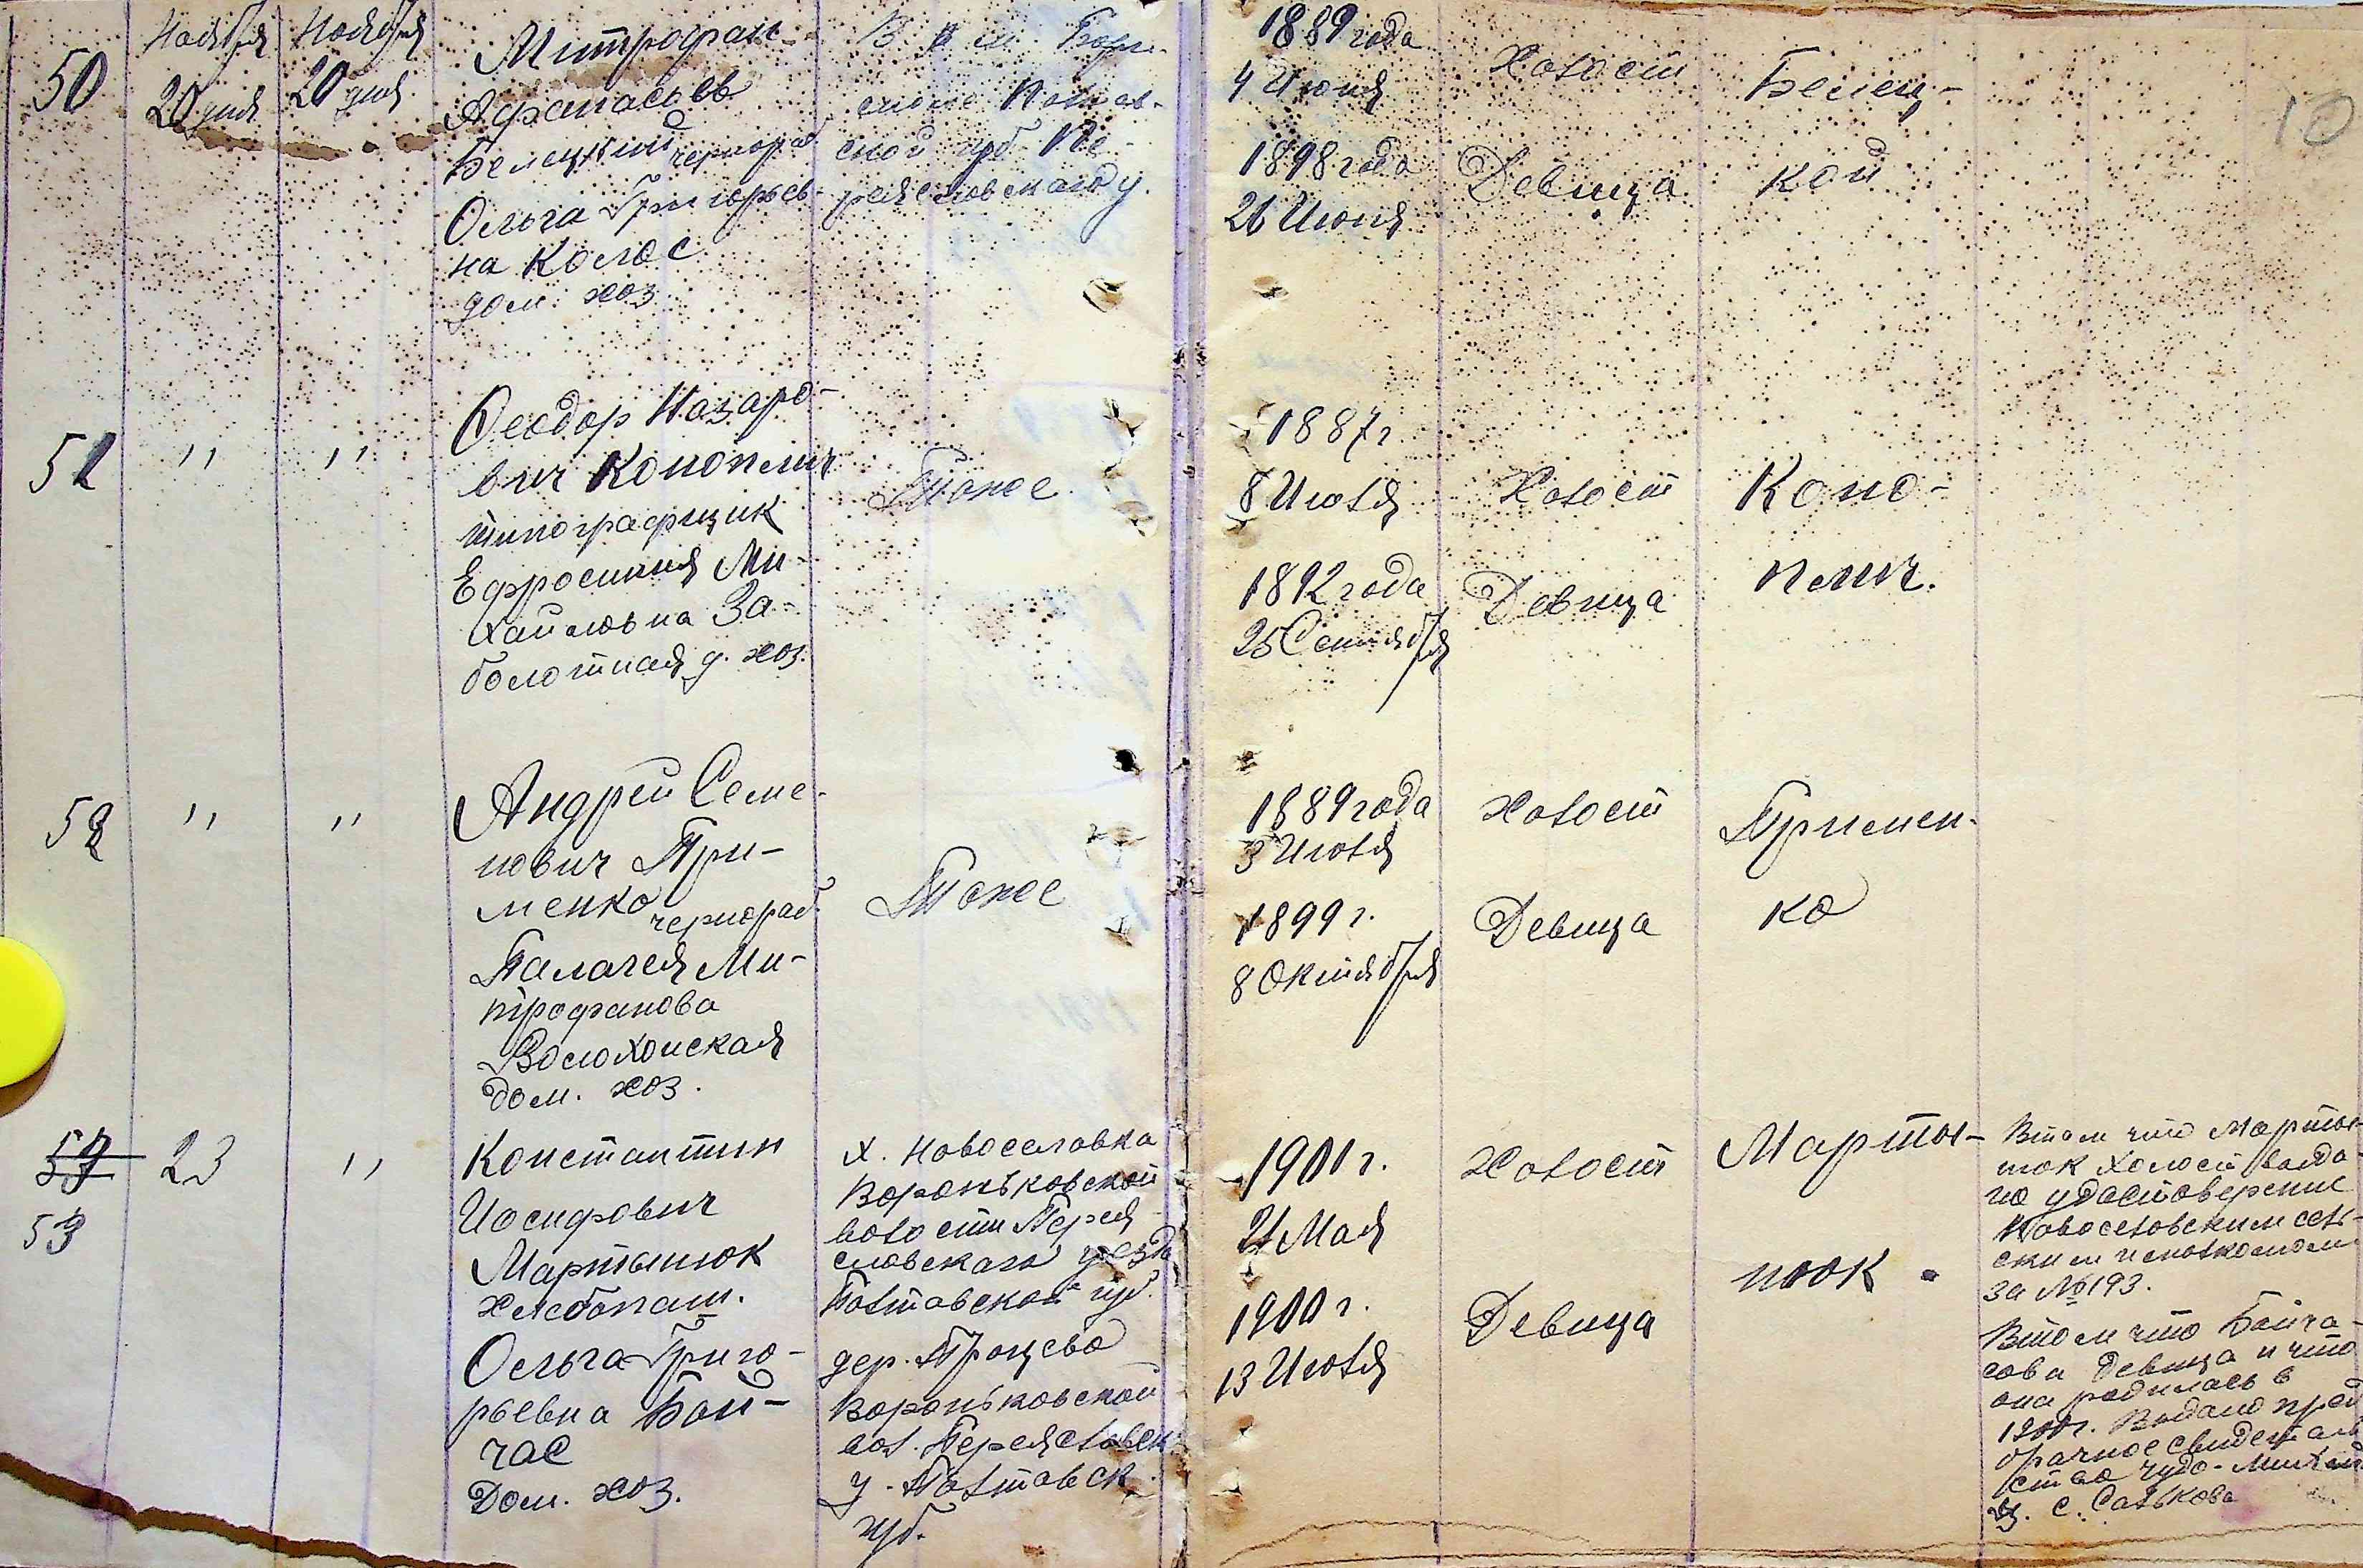 50
Ноября
20 дня
Ноября
20 дня
Митрофан
Афанасьев
Белецкий чернораб.
Ольга Григорьев-
на Колос
дом. хоз.
В м Бори-
споле Полтав-
ской губ. Пе-
реяславскаго у.
1889 года
4 Июня
1898 года
26 Июня
Холост
Девица
Белец-
кой
10
51
"
"
Феодор Назаро-
вич Коноплич
типографщик
Ефросиния Ми-
хайловна За-
болотная д. хоз.
Тоже
1887 г
8 Июля
1892 года
25 Сентября
Холост
Девица
Коно-
плич.
52
"
"
Андрей Семе-
нович При-
менко чернораб.
Палагея Ми-
трофанова
Волоховская
дом. хоз.
Тоже
1889 года
3 Июля
1899 г.
8 Октября
Холост
Девица
Примен-
ко
53
23
"
Константин
Иосифович
Мартынюк
хлебопаш.
Ольга Григо-
рьевна Бой-
час
Дом. хоз.
х. Новоселовка
Вороньковской
волости Перея-
словскаго уезда
Полтавской губ.
дер. Процево
Вороньковской
вол. Переяславск.
у. Полтавск.
губ.
1901 г.
21 Мая
1900 г.
13 Июля
Холост
Девица
Марты-
нюк
Втом что Марты-
нюк холост выда-
но удостоверение
Новоселовским сель-
ским исполкомом
за № 193.
Втом что Бойча-
сова девица и что
она родилась в
1900 г. Выдано пред
брачное свидетель
ство Чудо-Михайл
ц. с. Салькова